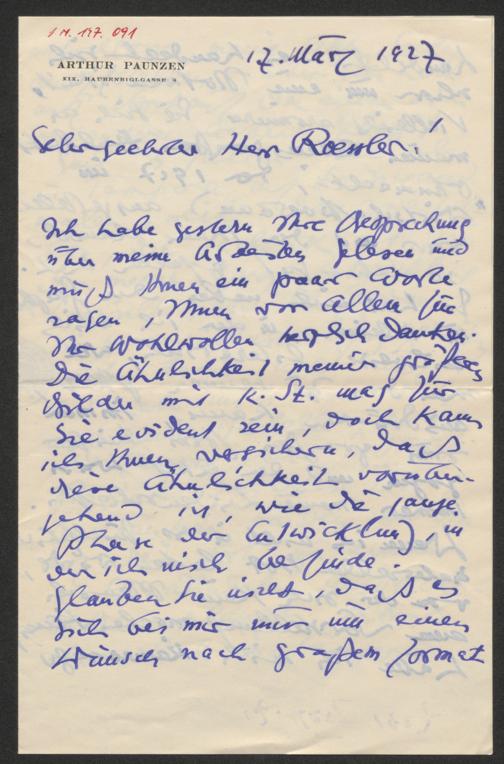 I.N. 137.091
ARTHUR PAUNZEN
XIX. HAUBENBIGLGASSE 3
17. März 1927
Sehr geehrter Herr Roessler!
Ich habe gestern Ihre Besprechung
über meine Arbeiten gelesen und
muß Ihnen ein paar Worte
sagen, Ihnen vor allem für
Ihr Wohlwollen herzlich danken.
Die Ähnlichkeit meiner großen
Bilder mit K. St. mag für
Sie evident sein, doch kann
ich Ihnen versichern, daß
diese Ähnlichkeit vorüber-
gehend ist, wie die ganze
Phase der Entwicklung, in
der ich mich befinde.
Glauben Sie nicht, daß es
sich bei mir nur um einen
Wunsch nach großem Format